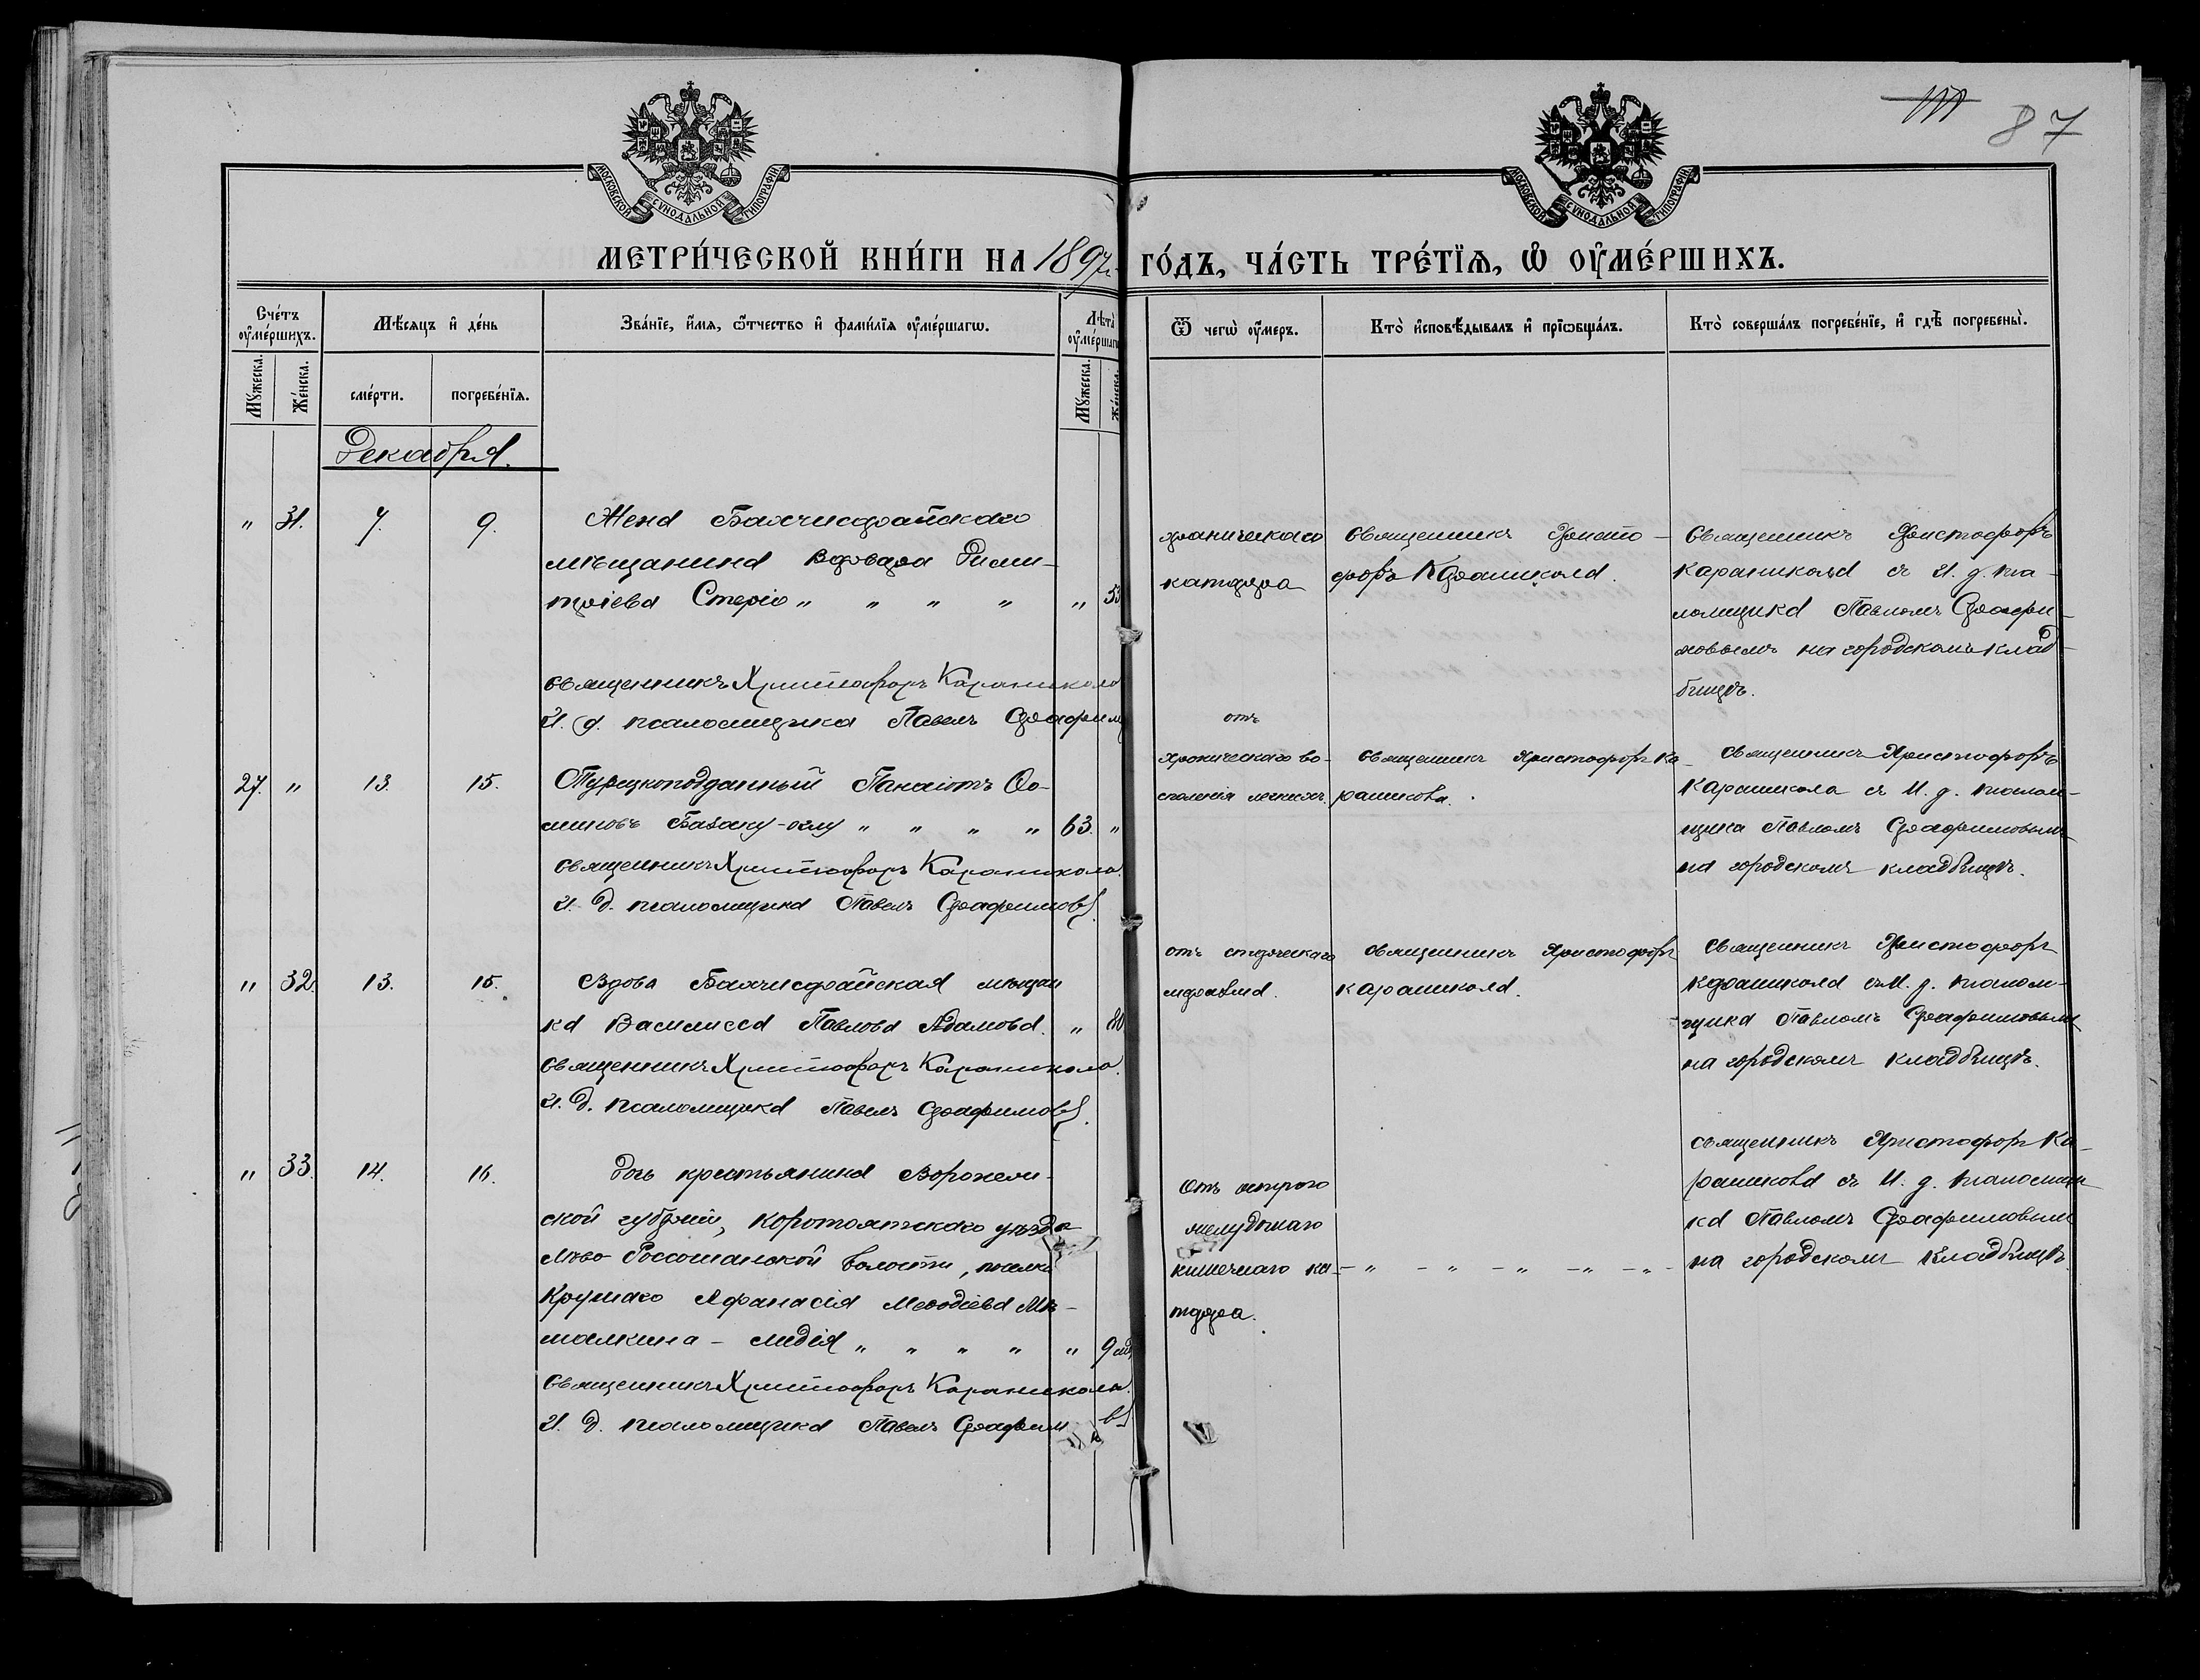 МОСКОВСКОЙ СУНОДАЛЬНОЙ ТИПОГРАФІИ
МОСКОВСКОЙ СУНОДАЛЬНОЙ ТИПОГРАФІИ
87
МЕТРИ́ЧЕСКОЙ КНИ́ГИ НА 1897 г. ГО́ДЪ, ЧА́СТЬ ТРЕ́ТЇѦ, Ѡ ОУ҆МЕ́РШИХЪ.
Сче́тъ оу҆ме́ршихъ.
Мѣ́сяцъ и҆ де́нь
Зва́нїе, и҆́мѧ, ѻ҆́тчество и҆ фами́лїѧ оу҆ме́ршагѡ.
Лѣта̀ оу҆ме́ршагѡ
Ѿ чегѡ̀ оу҆́меръ.
Кто̀ и҆сповѣ́дывалъ и҆ прїѡбща́лъ.
Кто̀ соверша́лъ погребе́нїе, и҆ гдѣ̀ погребены̀.
Мꙋ́жеска.
Же́нска.
сме́рти.
погребе́нїѧ.
Мꙋ́жеска.
Же́нска.
Декабря.
" 31. 7. 9.
Жена Бахчисарайскаго
мѣщанина Варвара Дими-
тріева Стеріо " " " " " 53
Священникъ Христофоръ Караникола
И. д. псаломщика Павелъ Серафим
хроническаго
катарра
Священникъ Христо-
форъ Караникола.
Священникъ Христофоръ
Караникола съ И. д. пса-
ломщика Павломъ Серафи-
мовымъ на городскомъ клад-
бищѣ.
27. " 13. 15.
Турецкоподданный Панаіотъ Ѳо-
миновъ Базану-оглу " " " " 63. "
Священникъ Христофоръ Караникола.
И. д. псаломщика Павелъ Серафимовъ.
отъ
хроническаго во-
спаленія легкихъ.
Священникъ Христофоръ Ка-
раникола.
Священникъ Христофоръ
Караникола съ И. д. псалом-
щика Павломъ Серафимовымъ
на городскомъ кладбищѣ.
" 32. 13. 15.
Вдова Бахчисарайская мѣщан
ка Василисса Павлова Адамова. " 80
Священникъ Христофоръ Караникола.
И. д. псаломщика Павелъ Серафимовъ.
отъ старческаго
маразма.
Священникъ Христофоръ
Караникола.
Священникъ Христофоръ
Караникола съ И. д. псалом-
щика Павломъ Серафимовымъ
на городскомъ кладбищѣ.
" 33. 14. 16.
Дочь крестьянина Воронеж-
ской губерніи, Коротоякскаго уѣзда
Лѣво-Россошанской волости, поселка
Круглаго Афанасія Меѳодіева Мѣ-
шалкина - Лидія " " " " " 9 мѣс.
Священникъ Христофоръ Караникола.
И. д. псаломщика Павелъ Серафимовъ
Отъ острого
желудочнаго
кишечнаго ка-
тарра.
- " - " - " - " - " -
Священникъ Христофоръ Ка-
раникола съ И. д. псаломщи
ка Павломъ Серафимовымъ
на городскомъ кладбищѣ.